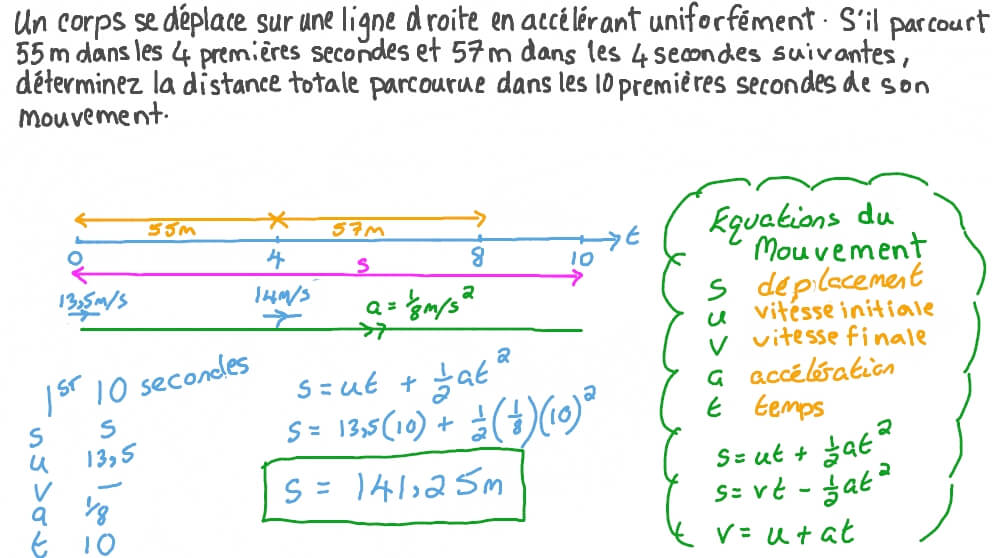 Un corps se déplace sur une ligne droite en accélérant uniforfément. S'il parcourt
55m dans les 4 premières secondes et 57m dans les 4 secondes suivantes,
déterminez la distance totale parcourue dans les 10 premières secondes de son
mouvement.
55m 57m
0 4 8 10 t
s
13,5m/s 14m/s a = 1/8 m/s²
1st 10 secondes
s s
u 13,5
v —
a 1/8
t 10
s = ut + 1/2 at²
s = 13,5(10) + 1/2 (1/8)(10)²
s = 141,25m
Equations du
Mouvement
s déplacement
u vitesse initiale
v vitesse finale
a accélération
t temps
s = ut + 1/2 at²
s = vt - 1/2 at²
v = u + at